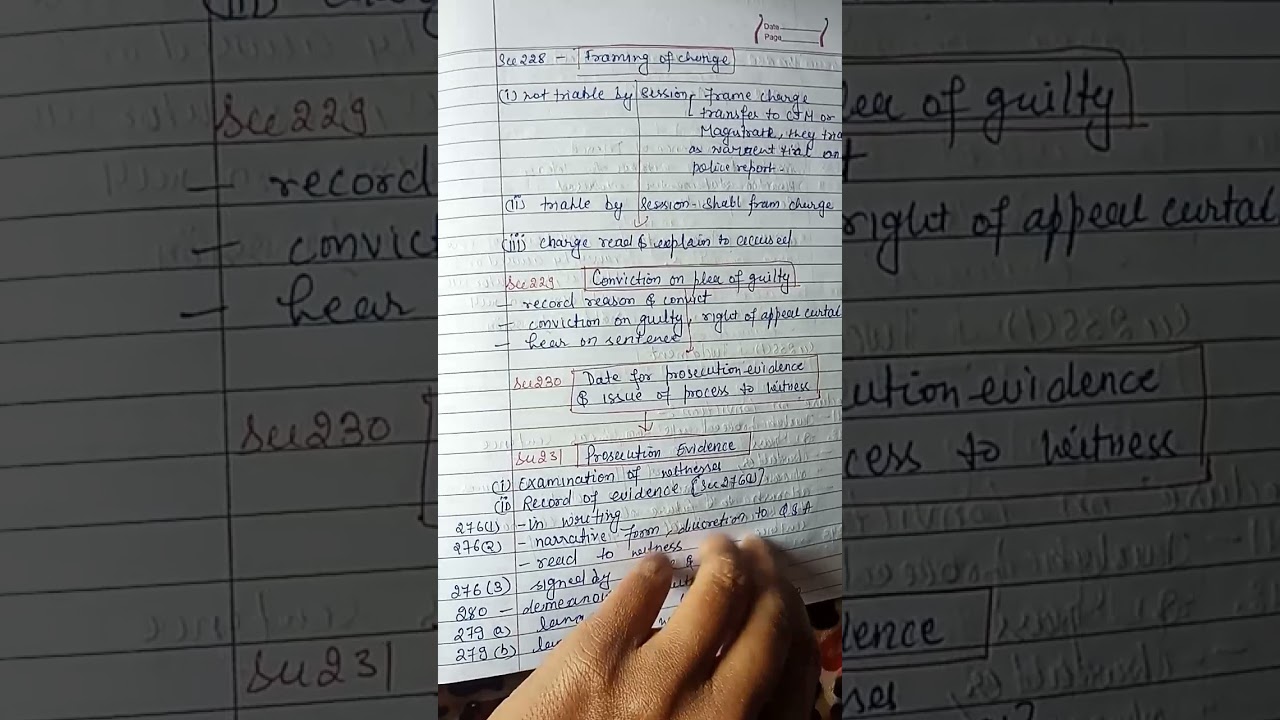 Date
Page
Sec 228 - Framing of charge
(i) not triable by session - frame charge
transfer to CJM or
Magistrate, they
as warrent trial on
police report.
(ii) triable by session - shall fram charge
(iii) charge read & explain to accused
Sec 229 Conviction on plea of guilty
- record reason & convict
- conviction on guilty, right of appeal curtal
- hear on sentence
Sec 230 Date for prosecution evidence
& issue of process to witness
Sec 231 Prosecution Evidence
(i) Examination of witnesses
(ii) Record of evidence [Sec 276(1)]
276(1) - in writing
276(2) - narrative form, discretion to Q & A
- read to witness
276(3) signed by
280 -
279 (a)
279 (b)
Sec 229
- record
-
- hear
Sec 230
Sec 231
plea of guilty
right of appeal curtal
witness